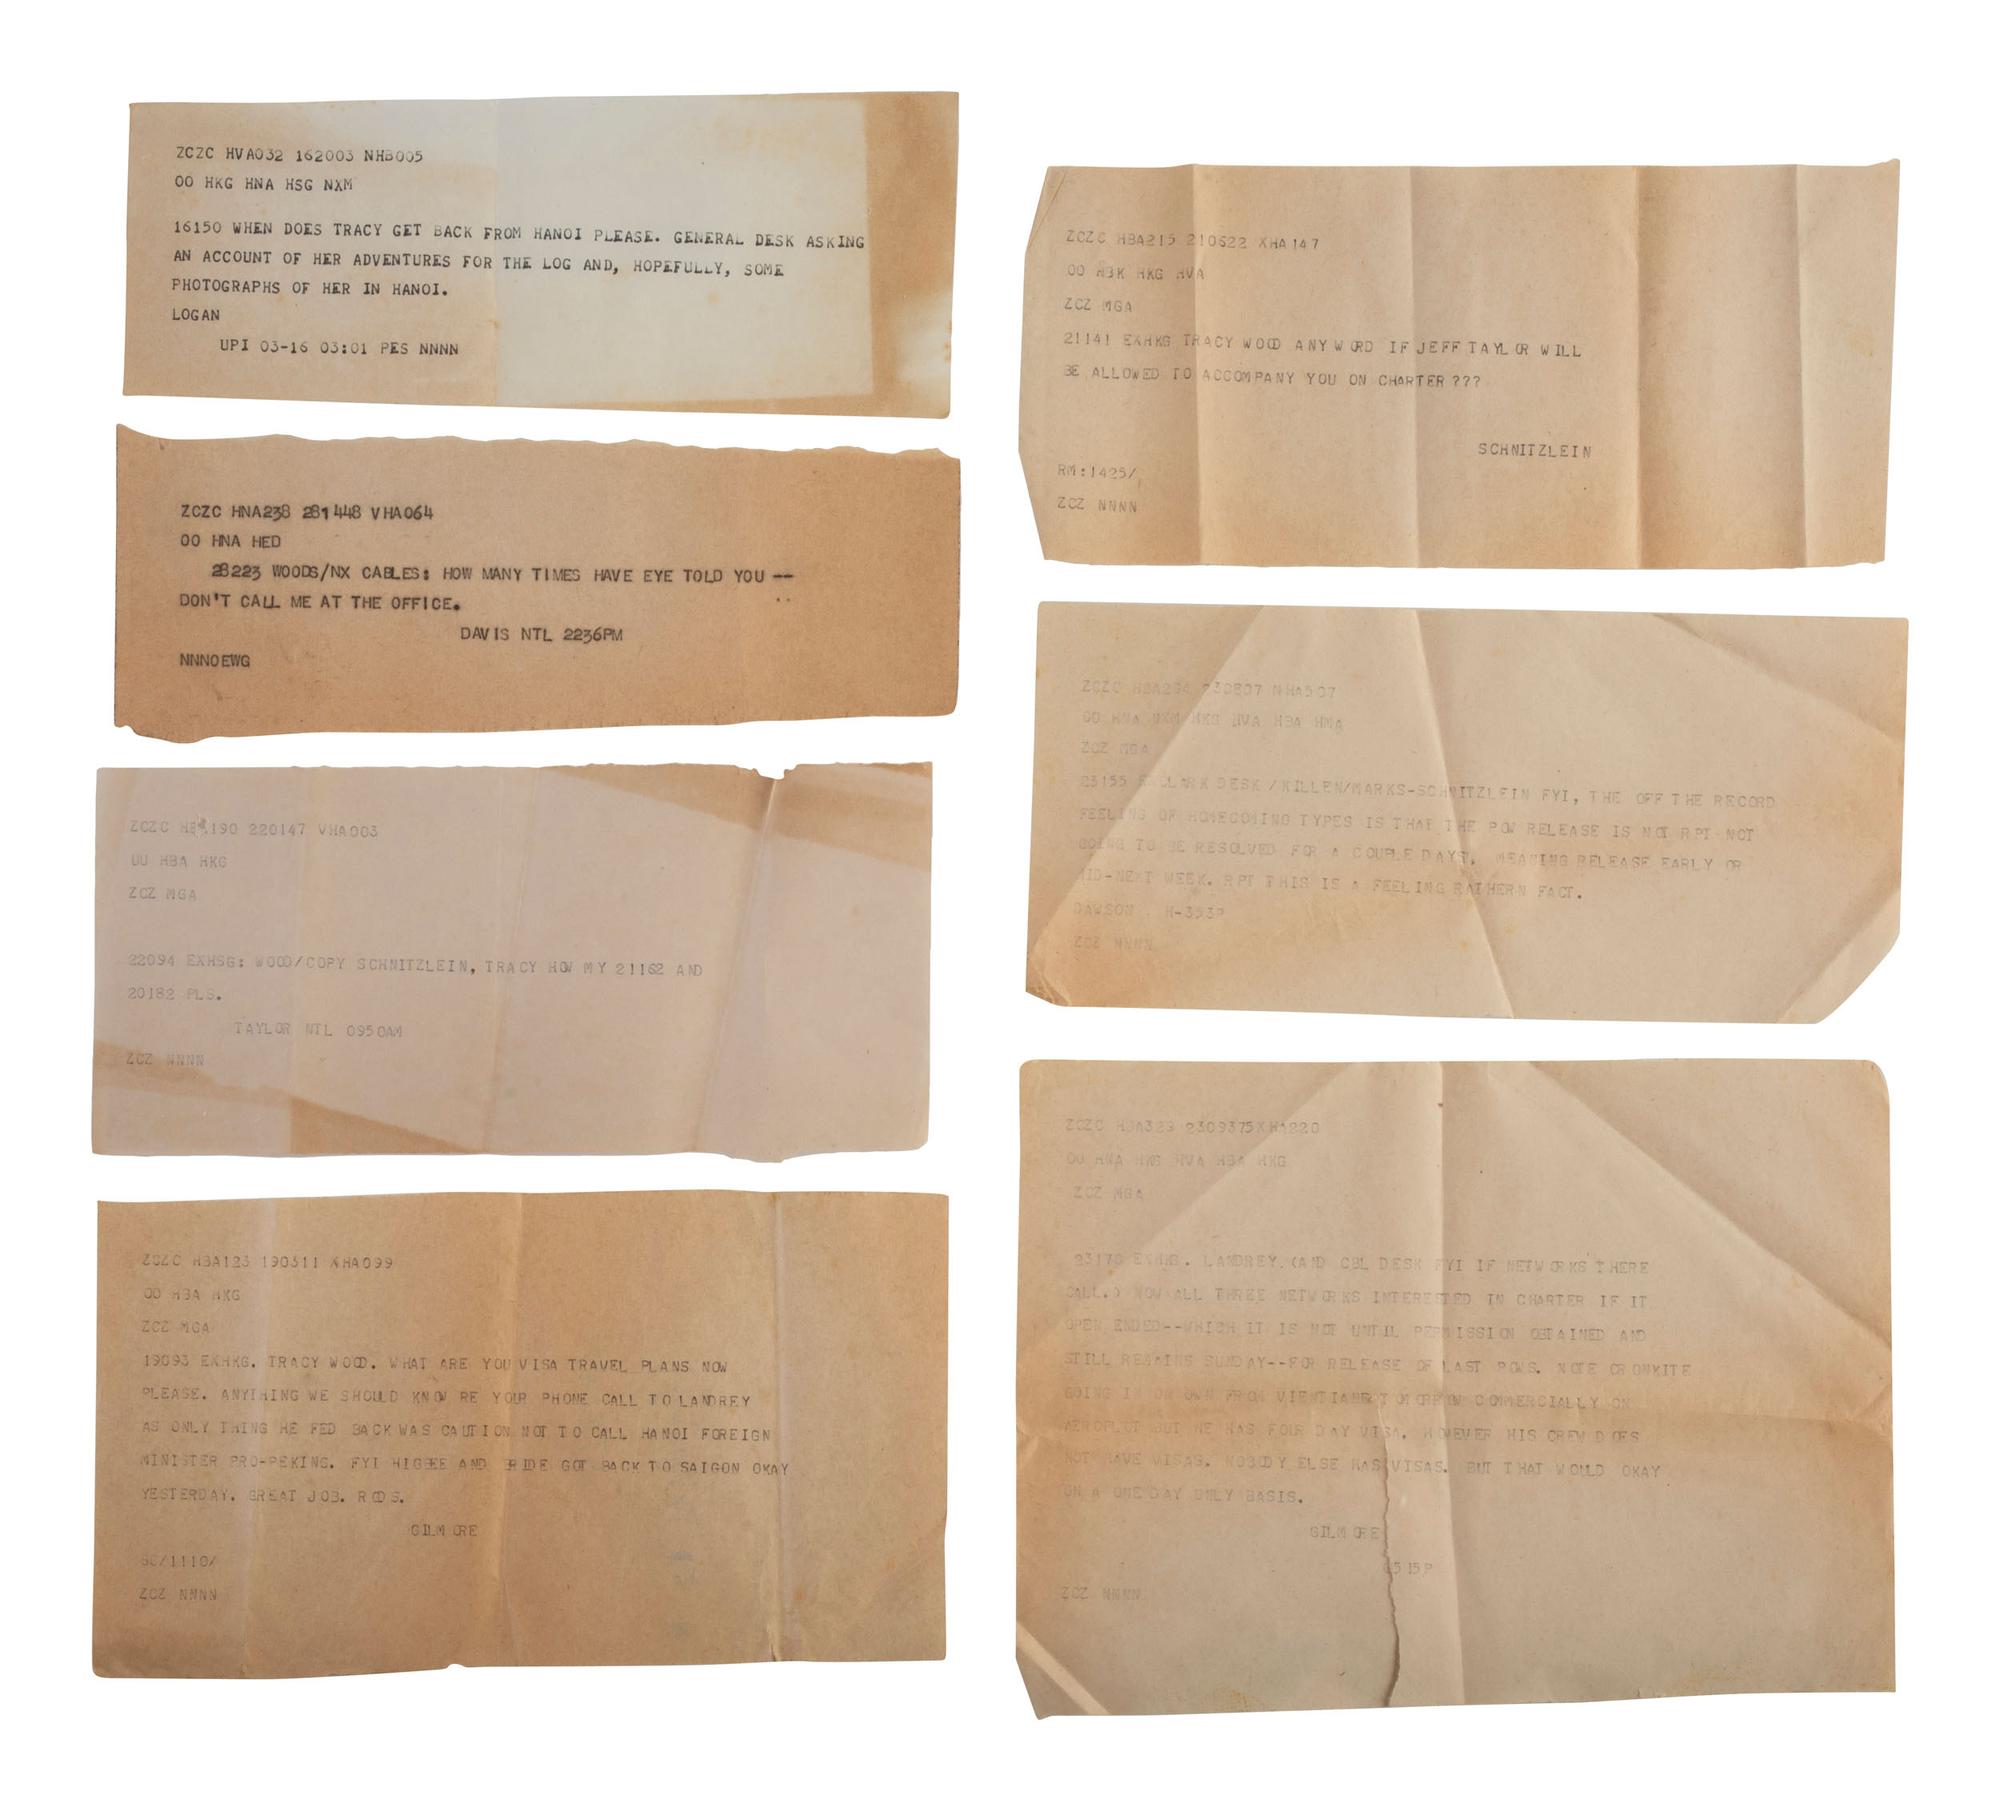 ZCZC HVA032 162003 NHB005
OO HKG HNA HSG NXM
16150 WHEN DOES TRACY GET BACK FROM HANOI PLEASE. GENERAL DESK ASKING
AN ACCOUNT OF HER ADVENTURES FOR THE LOG AND, HOPEFULLY, SOME
PHOTOGRAPHS OF HER IN HANOI.
LOGAN
UPI 03-16 03:01 PES NNNN
ZCZC HNA238 281448 VHA064
OO HNA HED
28223 WOODS/NX CABLES: HOW MANY TIMES HAVE EYE TOLD YOU --
DON'T CALL ME AT THE OFFICE.
DAVIS NTL 2236PM
NNNOEWG
ZCZC 190 220147 VHA003
UU HBA HKG
ZCZ MGA
22094 EXHSG: WOOD/COPY SCHNITZLEIN, TRACY HOW MY 21162 AND
20182 PLS.
TAYLOR NTL 0950AM
ZCZ NNNN
ZCZC HBA123 190311 XHA099
OO HBA HKG
ZCZ MGA
19093 EXHKG. TRACY WOOD. WHAT ARE YOU VISA TRAVEL PLANS NOW
PLEASE. ANYTHING WE SHOULD KNOW RE YOUR PHONE CALL TO LANDREY
AS ONLY THING HE FED BACK WAS CAUTION NOT TO CALL HANOI FOREIGN
MINISTER PRO-PEKING. FYI HIGBEE AND BRIDE GOT BACK TO SAIGON OKAY
YESTERDAY. GREAT JOB. RODS.
GILMORE
/1110/
ZCZ NNNN
ZCZC HBA215 210622 XHA147
OO HBK HKG HVA
ZCZ MGA
21141 EXHKG TRACY WOOD ANYWORD IF JEFF TAYLOR WILL
BE ALLOWED TO ACCOMPANY YOU ON CHARTER???
SCHNITZLEIN
RM:1425/
ZCZ NNNN
ZCZC HBA294 230807 NHA507
OO HNA NXM HKG HVA HBA HMA
ZCZ MGA
23155 EXCLARK DESK/KILLEN/MARKS-SCHNITZLEIN FYI, THE OFF THE RECORD
FEELING OF HOMECOMING TYPES IS THAT THE POW RELEASE IS NOT RPT NOT
GOING TO BE RESOLVED FOR A COUPLE DAYS, MEANING RELEASE EARLY OR
MID-NEXT WEEK. RPT THIS IS A FEELING RATHERN FACT.
DAWSON H-353P
ZCZ NNNN
ZCZC HBA329 2309375XHA220
OO HNA HKG HVA HBA HKG
ZCZ MGA
23170 EXHKG. LANDREY. (AND CBL DESK FYI IF NETWORKS THERE
CALL.) NOW ALL THREE NETWORKS INTERESTED IN CHARTER IF IT
OPEN ENDED--WHICH IT IS NOT UNTIL PERMISSION OBTAINED AND
STILL REMAINS SUNDAY--FOR RELEASE OF LAST POWS. NOTE CRONKITE
GOING IN ON OWN FROM VIENTIANE TOMORROW COMMERCIALLY ON
AEROFLOT BUT HE HAS FOUR DAY VISA. HOWEVER HIS CREW DOES
NOT HAVE VISAS. NOBODY ELSE HAS VISAS. BUT THAT WOULD OKAY
ON A ONE DAY ONLY BASIS.
GILMORE
515P
ZCZ NNNN